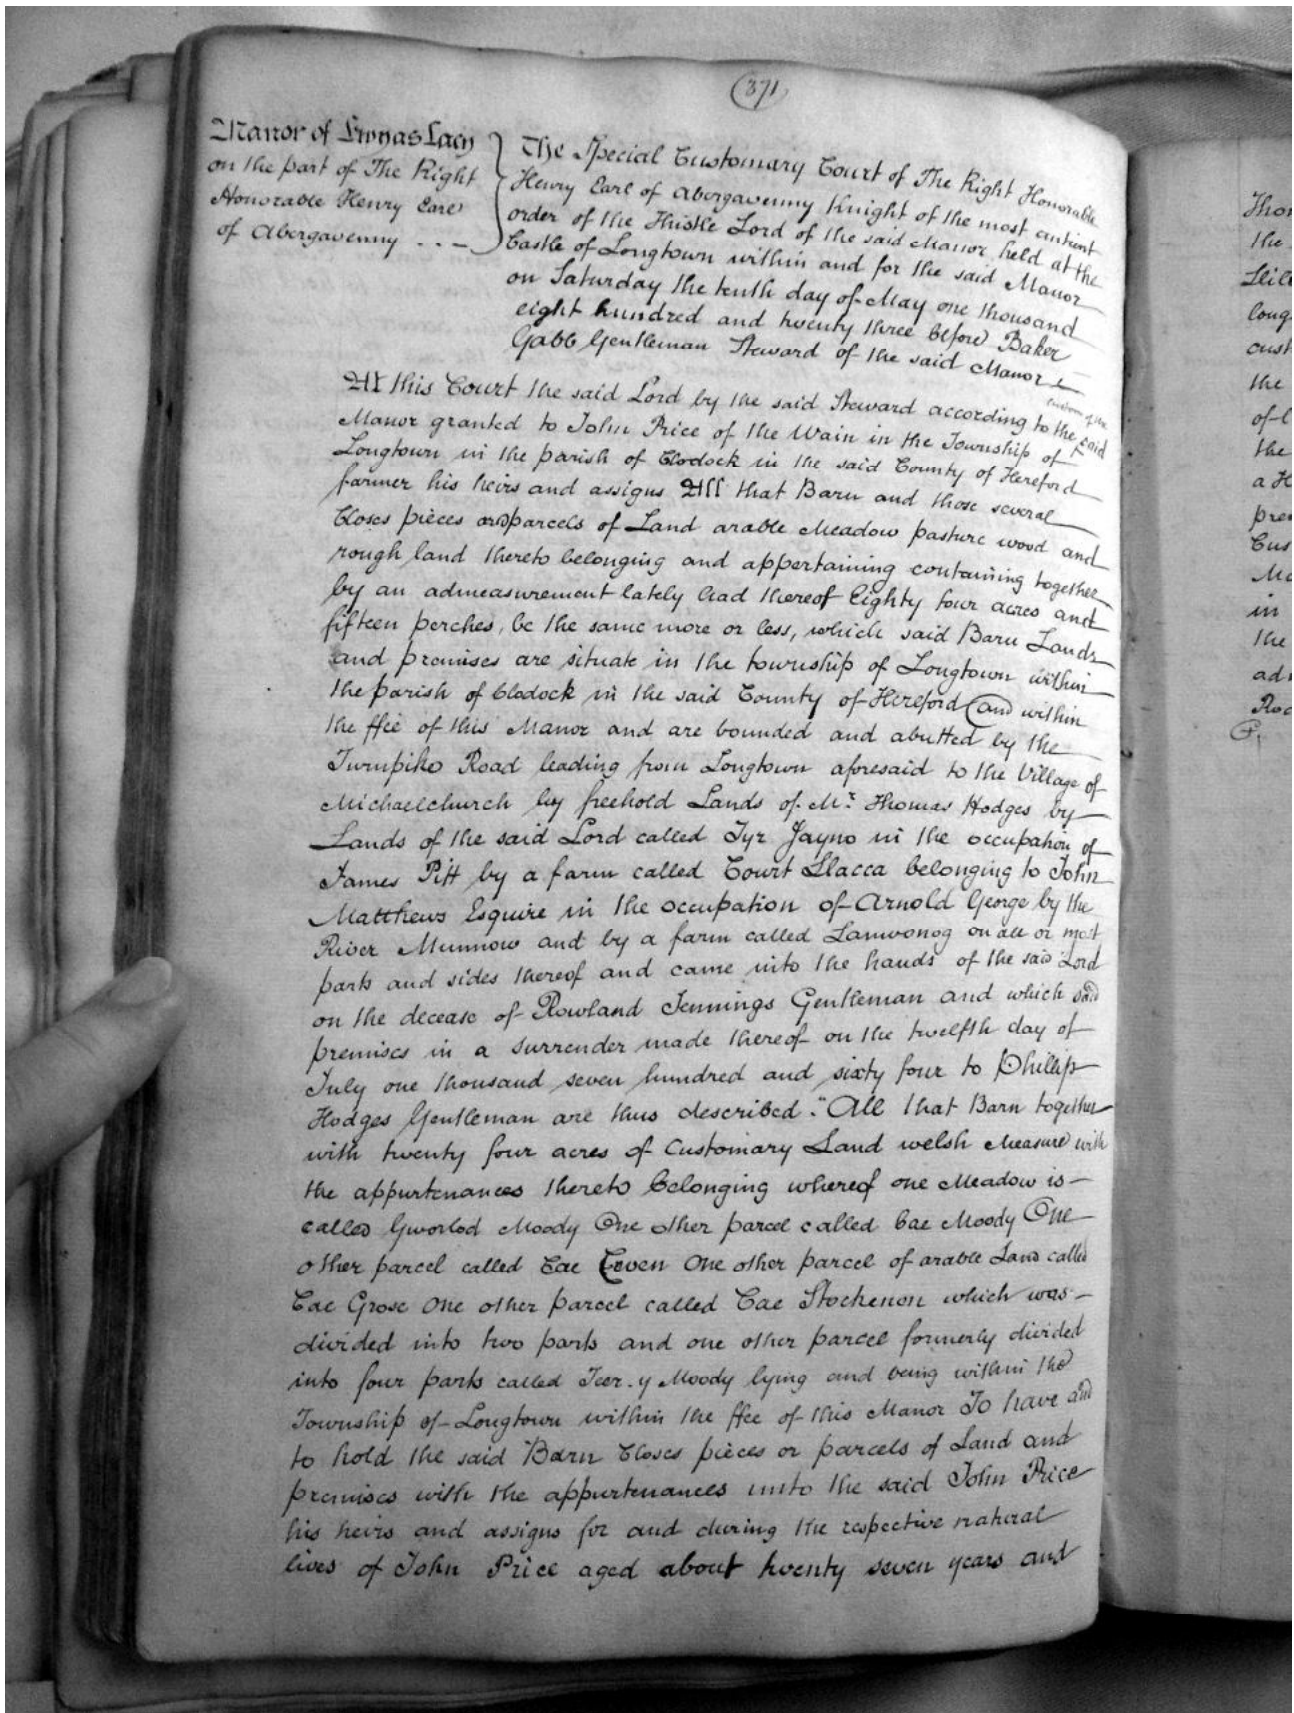 (371)
Manor of Ewyas Lacy
on the part of The Right
Honorable Henry Earl
of Abergavenny
The Special Customary Court of The Right Honorable
Henry Earl of Abergavenny Knight of the most antient
order of the Thistle Lord of the said Manor held at the
Castle of Longtown within and for the said Manor
on Saturday the tenth day of May one thousand
eight hundred and twenty three before Baker
Gabb Gentleman Steward of the said Manor
At this Court the said Lord by the said Steward according to the custom of the said
Manor granted to John Price of the Wain in the Township of
Longtown in the parish of Clodock in the said County of Hereford
farmer his heirs and assigns All that Barn and those several
Closes pieces or parcels of Land arable Meadow pasture wood and
rough land thereto belonging and appertaining containing together
by an admeasurement lately had thereof Eighty four acres and
fifteen perches, be the same more or less, which said Barn Lands
and premises are situate in the township of Longtown within
the parish of Clodock in the said County of Hereford and within
the ffee of this Manor and are bounded and abutted by the
Turnpike Road leading from Longtown aforesaid to the Village of
Michaelchurch by freehold Lands of Mr. Thomas Hodges by
Lands of the said Lord called Tyr Jayno in the occupation of
James Pitt by a farm called Court Llacca belonging to John
Matthews Esquire in the occupation of Arnold George by the
River Munnow and by a farm called Lanwonog on all or most
parts and sides thereof and came into the hands of the said Lord
on the decease of Rowland Jennings Gentleman and which said
premises in a surrender made thereof on the twelfth day of
July one thousand seven hundred and sixty four to Phillip
Hodges Gentleman are thus described. "All that Barn together
with twenty four acres of Customary Land welsh Measure with
the appurtenances thereto belonging whereof one Meadow is
called Gworlod Moody One other parcel called Cae Moody One
other parcel called Cae One other parcel of arable Land called
Cae Grose One other parcel called Cae Stockenon which was
divided into two parts and one other parcel formerly divided
into four parts called Teer-y Moody lying and being within the
Township of Longtown within the ffee of this Manor To have and
to hold the said Barn Closes pieces or parcels of Land and
premises with the appurtenances unto the said John Price
his heirs and assigns for and during the respective natural
lives of John Price aged about twenty seven years and
the
long
cust
the
the
in
the